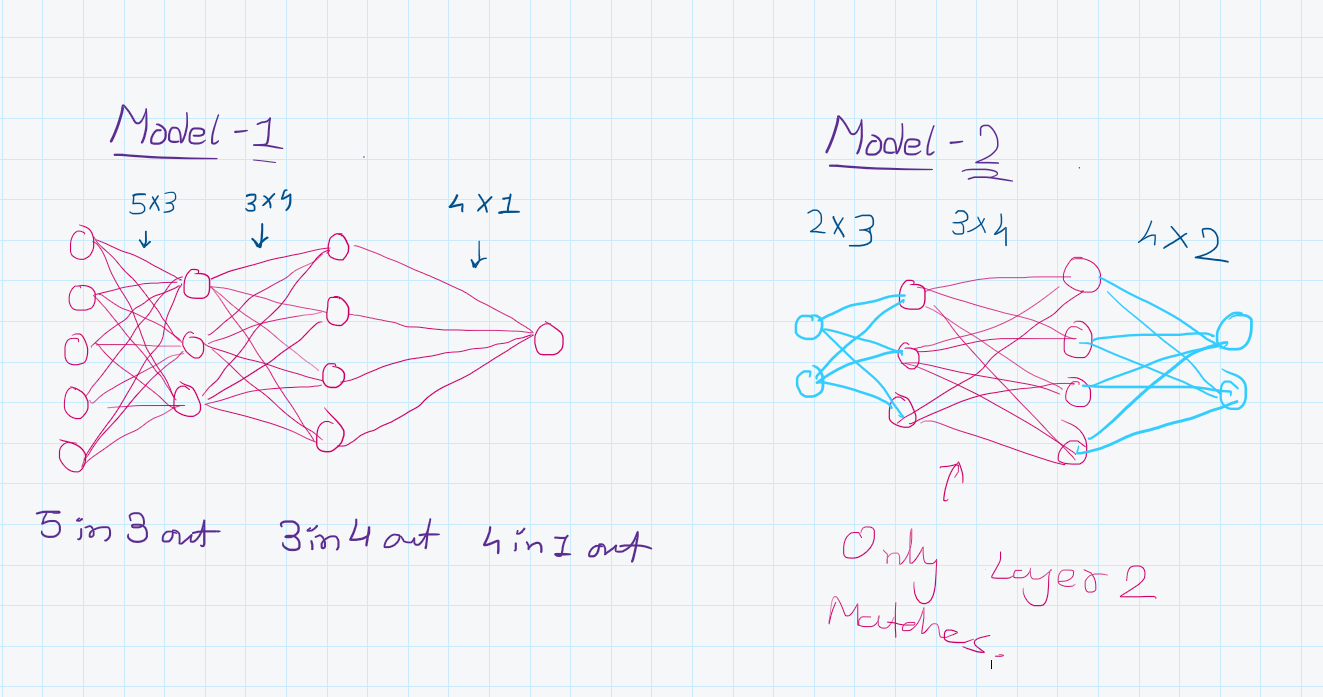 Model - 1
5x3 3x4 4x1
5 in 3 out 3 in 4 out 4 in 1 out
Model - 2
2x3 3x4 4x2
Only Layer 2
Matches.